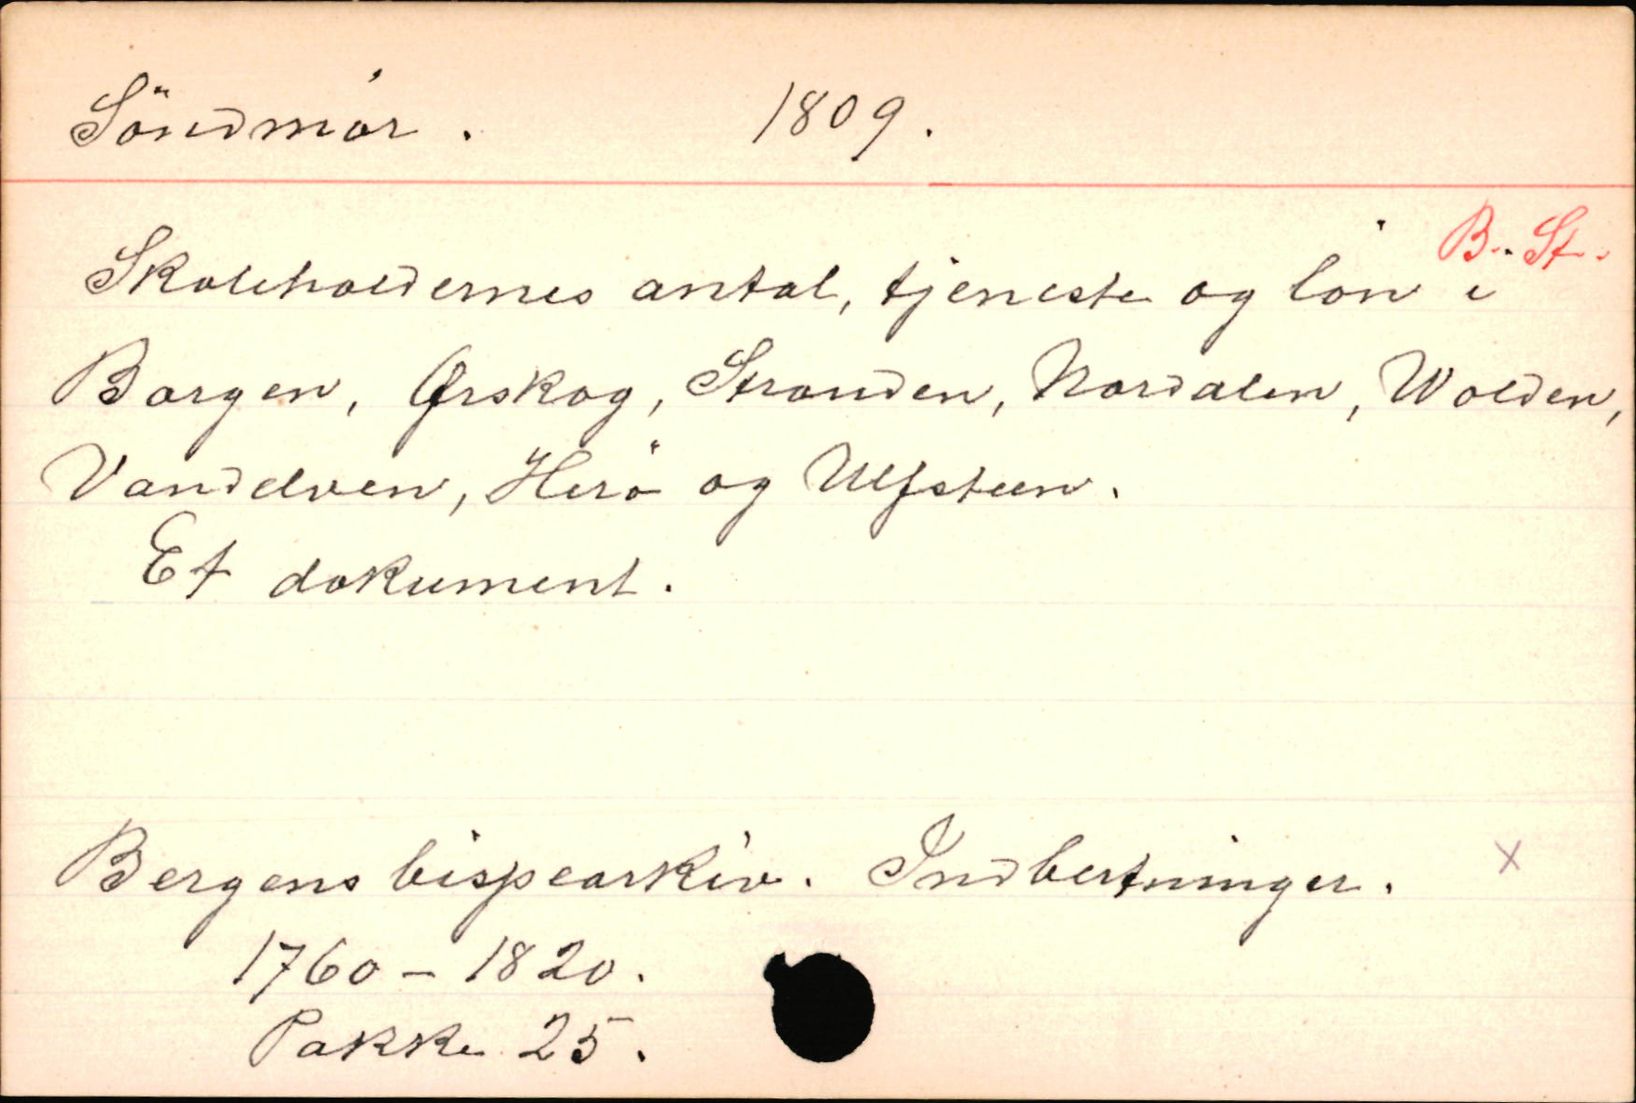 Söndmör. 1809.
B. St.
Skoleholdernes antal, tjeneste og lön i
Borgen, Ørskog, Stranden, Nordalen, Wolden,
Vandelven, Herö og Ulfsteen.
Et dokument.
Bergens bispearkiv. Indbertninger. x
1760-1820.
Pakke 25.